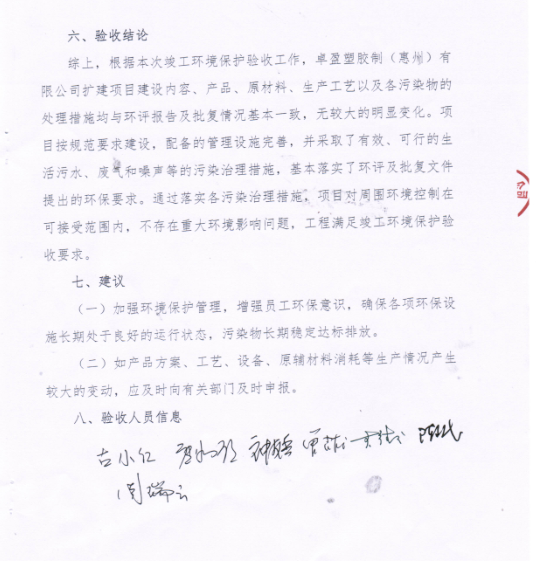 六、验收结论
综上，根据本次竣工环境保护验收工作，卓盈塑胶制（惠州）有
限公司扩建项目建设内容、产品、原材料、生产工艺以及各污染物的
处理措施均与环评报告及批复情况基本一致，无较大的明显变化。项
目按规范要求建设，配备的管理设施完善，并采取了有效、可行的生
活污水、废气和噪声等的污染治理措施，基本落实了环评及批复文件
提出的环保要求。通过落实各污染治理措施，项目对周围环境控制在
可接受范围内，不存在重大环境影响问题，工程满足竣工环境保护验
收要求。
七、建议
（一）加强环境保护管理，增强员工环保意识，确保各项环保设
施长期处于良好的运行状态，污染物长期稳定达标排放。
（二）如产品方案、工艺、设备、原辅材料消耗等生产情况产生
较大的变动，应及时向有关部门及时申报。
八、验收人员信息
古小红
周瑞云